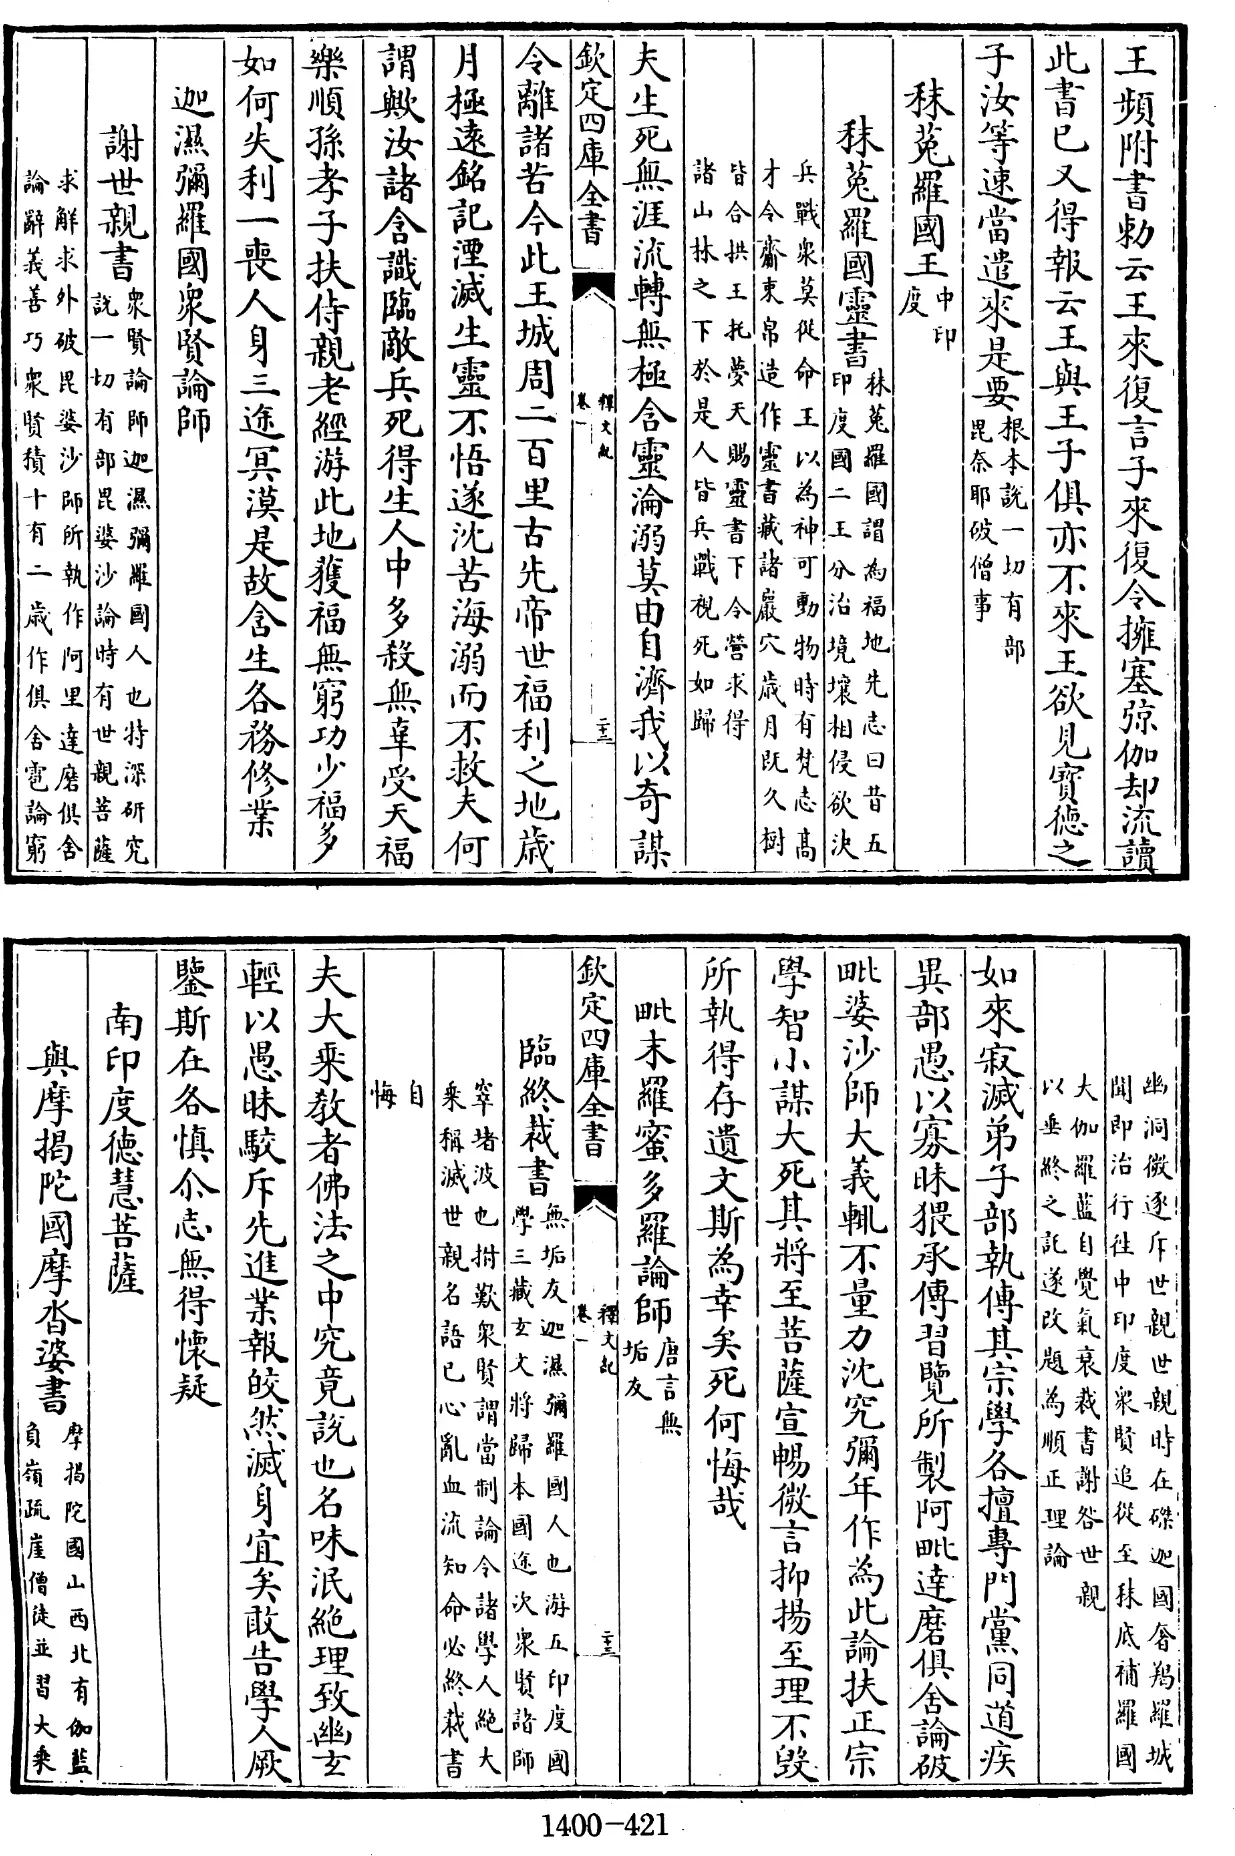 王頻附書勅云王來復言子來復令擁塞弶伽却流讀
此書已又得報云王與王子俱亦不來王欲見寳德之
子汝等速當遣來是要根本說一切有部
毘奈耶破僧事
秣菟羅國王中印
度
秣菟羅國靈書秣菟羅國謂為福地先志曰昔五
印度國二王分治境壤相侵欲決
兵戰衆莫從命王以為神可動物時有梵志髙
才令齎束帛造作靈書藏諸巖穴歳月既久樹
皆合拱王托夢天賜靈書下令營求得
諸山林之下於是人皆兵戰視死如歸
夫生死無涯流轉無極含靈淪溺莫由自濟我以奇謀
欽定四庫全書
釋文紀
卷一
二十三
令離諸苦今此王城周二百里古先帝世福利之地歳
月極逺銘記湮滅生靈不悟遂沈苦海溺而不救夫何
謂歟汝諸含識臨敵兵死得生人中多殺無辜受天福
樂順孫孝子扶侍親老經游此地獲福無窮功少福多
如何失利一喪人身三途冥漠是故含生各務修業
迦濕彌羅國衆賢論師
謝世親書衆賢論師迦濕彌羅國人也特深研究
說一切有部毘婆沙論時有世親菩薩
求解求外破毘婆沙師所執作阿里達磨俱舍
論辭義善巧衆賢積十有二歳作俱舍雹論窮
幽洞微逐斥世親世親時在磔迦國奢羯羅城
聞即治行往中印度衆賢追從至秣底補羅國
大伽羅藍自覺氣衰裁書謝咎世親
以垂終之託遂改題為順正理論
如來寂滅弟子部執傳其宗學各擅專門黨同道疾
異部愚以寡昧猥承傳習覽所製阿毗達磨俱舍論破
毗婆沙師大義輒不量力沈究彌年作為此論扶正宗
學智小謀大死其將至菩薩宣暢微言抑揚至理不毀
所執得存遺文斯為幸矣死何悔哉
毗末羅蜜多羅論師唐言無
垢友
欽定四庫全書
釋文紀
卷一
二十三
臨終裁書無垢友迦濕彌羅國人也游五印度國
學三藏玄文將歸本國途次衆賢論師
窣堵波也拊歎衆賢謂當制論令諸學人絶大
乘稱滅世親名語已心亂血流知命必終裁書
自
悔
夫大乗教者佛法之中究竟說也名味泯絶理致幽玄
輕以愚昧駮斥先進業報皎然滅身宜矣敢告學人厥
鑒斯在各慎尒志無得懷疑
南印度德慧菩薩
與摩揭陀國摩沓婆書摩揭陀國山西北有伽藍
負嶺疏崖僧徒並習大乗
1400-421